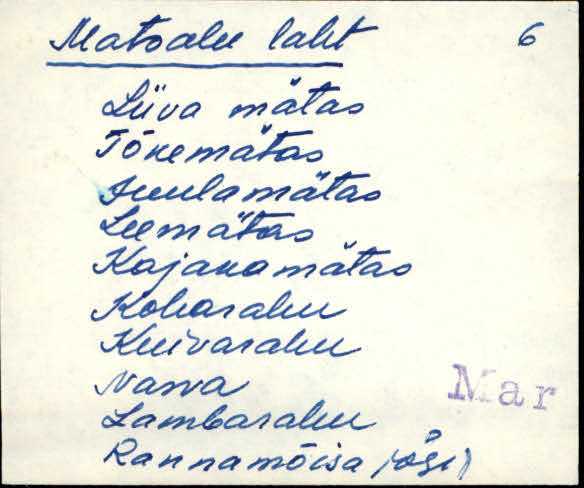 Matsalu laht 6
Liiva mätas
Tõnemätas
Suulamätas
Leemätas
Kajakamätas
Kobarahu
Kuivarahu
Narva
Mar
Lambarahu
Rannamõisa jõgi